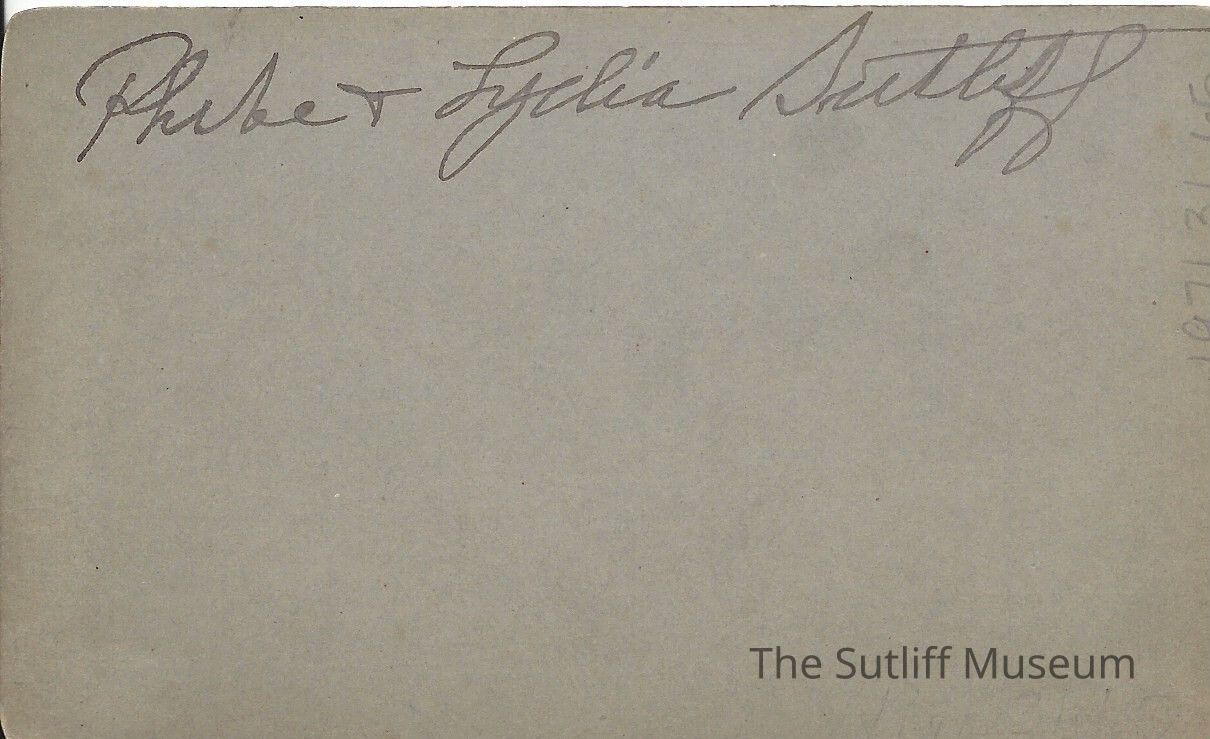 Phebe + Lydia Sutliff
The Sutliff Museum